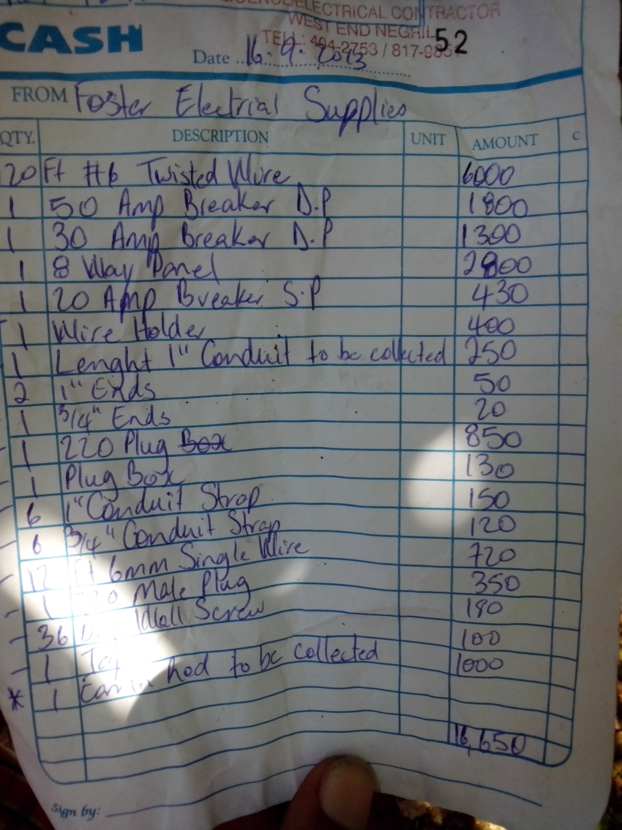 ELECTRICAL CONTRACTOR
WEST END NEGRIL
CASH
52
Date 16.9.2013
FROM Foster Electrial Supplies
QTY. DESCRIPTION UNIT AMOUNT C
20 Ft #6 Twisted Wire 6000
1 50 Amp Breaker D.P 1800
1 30 Amp Breaker D.P 1300
1 8 Way Panel 2800
1 20 Amp Breaker S.P 430
1 Wire Holder 400
1 Lenght 1" Conduit to be collected 250
2 1" Ends 50
1 3/4" Ends 20
1 220 Plug Box 850
1 Plug Box 130
6 1" Conduit Strap 150
6 3/4" Conduit Strap 120
12 Ft 6mm Single Wire 720
1 Male Plug 350
36 Wall Screw 180
1 100
* 1 hod to be collected 1000
16,650
Sign by: